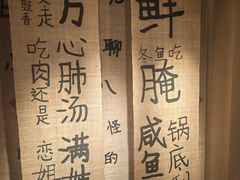 豉香
走
吃肉还是恋姐
心肺汤满
聊八怪的
鲜
冬鱼吃
腌
咸鱼
锅底